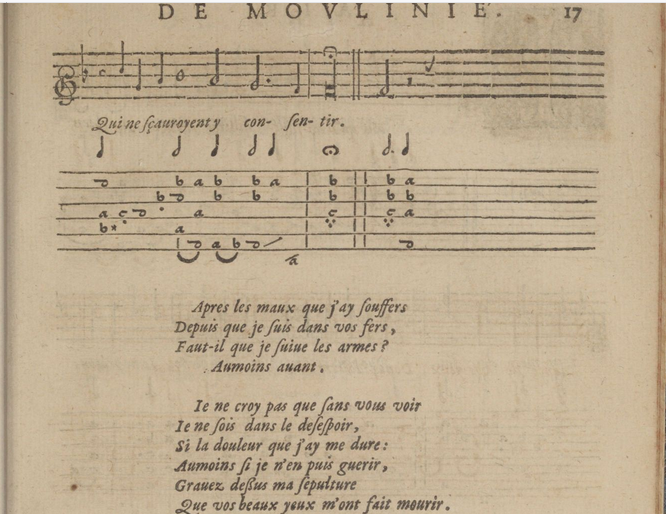 DE MOVLINIE. 17
Qui ne ſçauroyent y con- ſen- tir.
Apres les maux que j'ay ſouffers
Depuis que je ſuis dans vos fers,
Faut-il que je ſuiue les armes?
Aumoins auant.
Ie ne croy pas que ſans vous voir
Ie ne ſois dans le deſeſpoir,
Si la douleur que j'ay me dure:
Aumoins ſi je n'en puis guerir,
Grauez deſſus ma ſepulture
Que vos beaux yeux m'ont fait mourir.